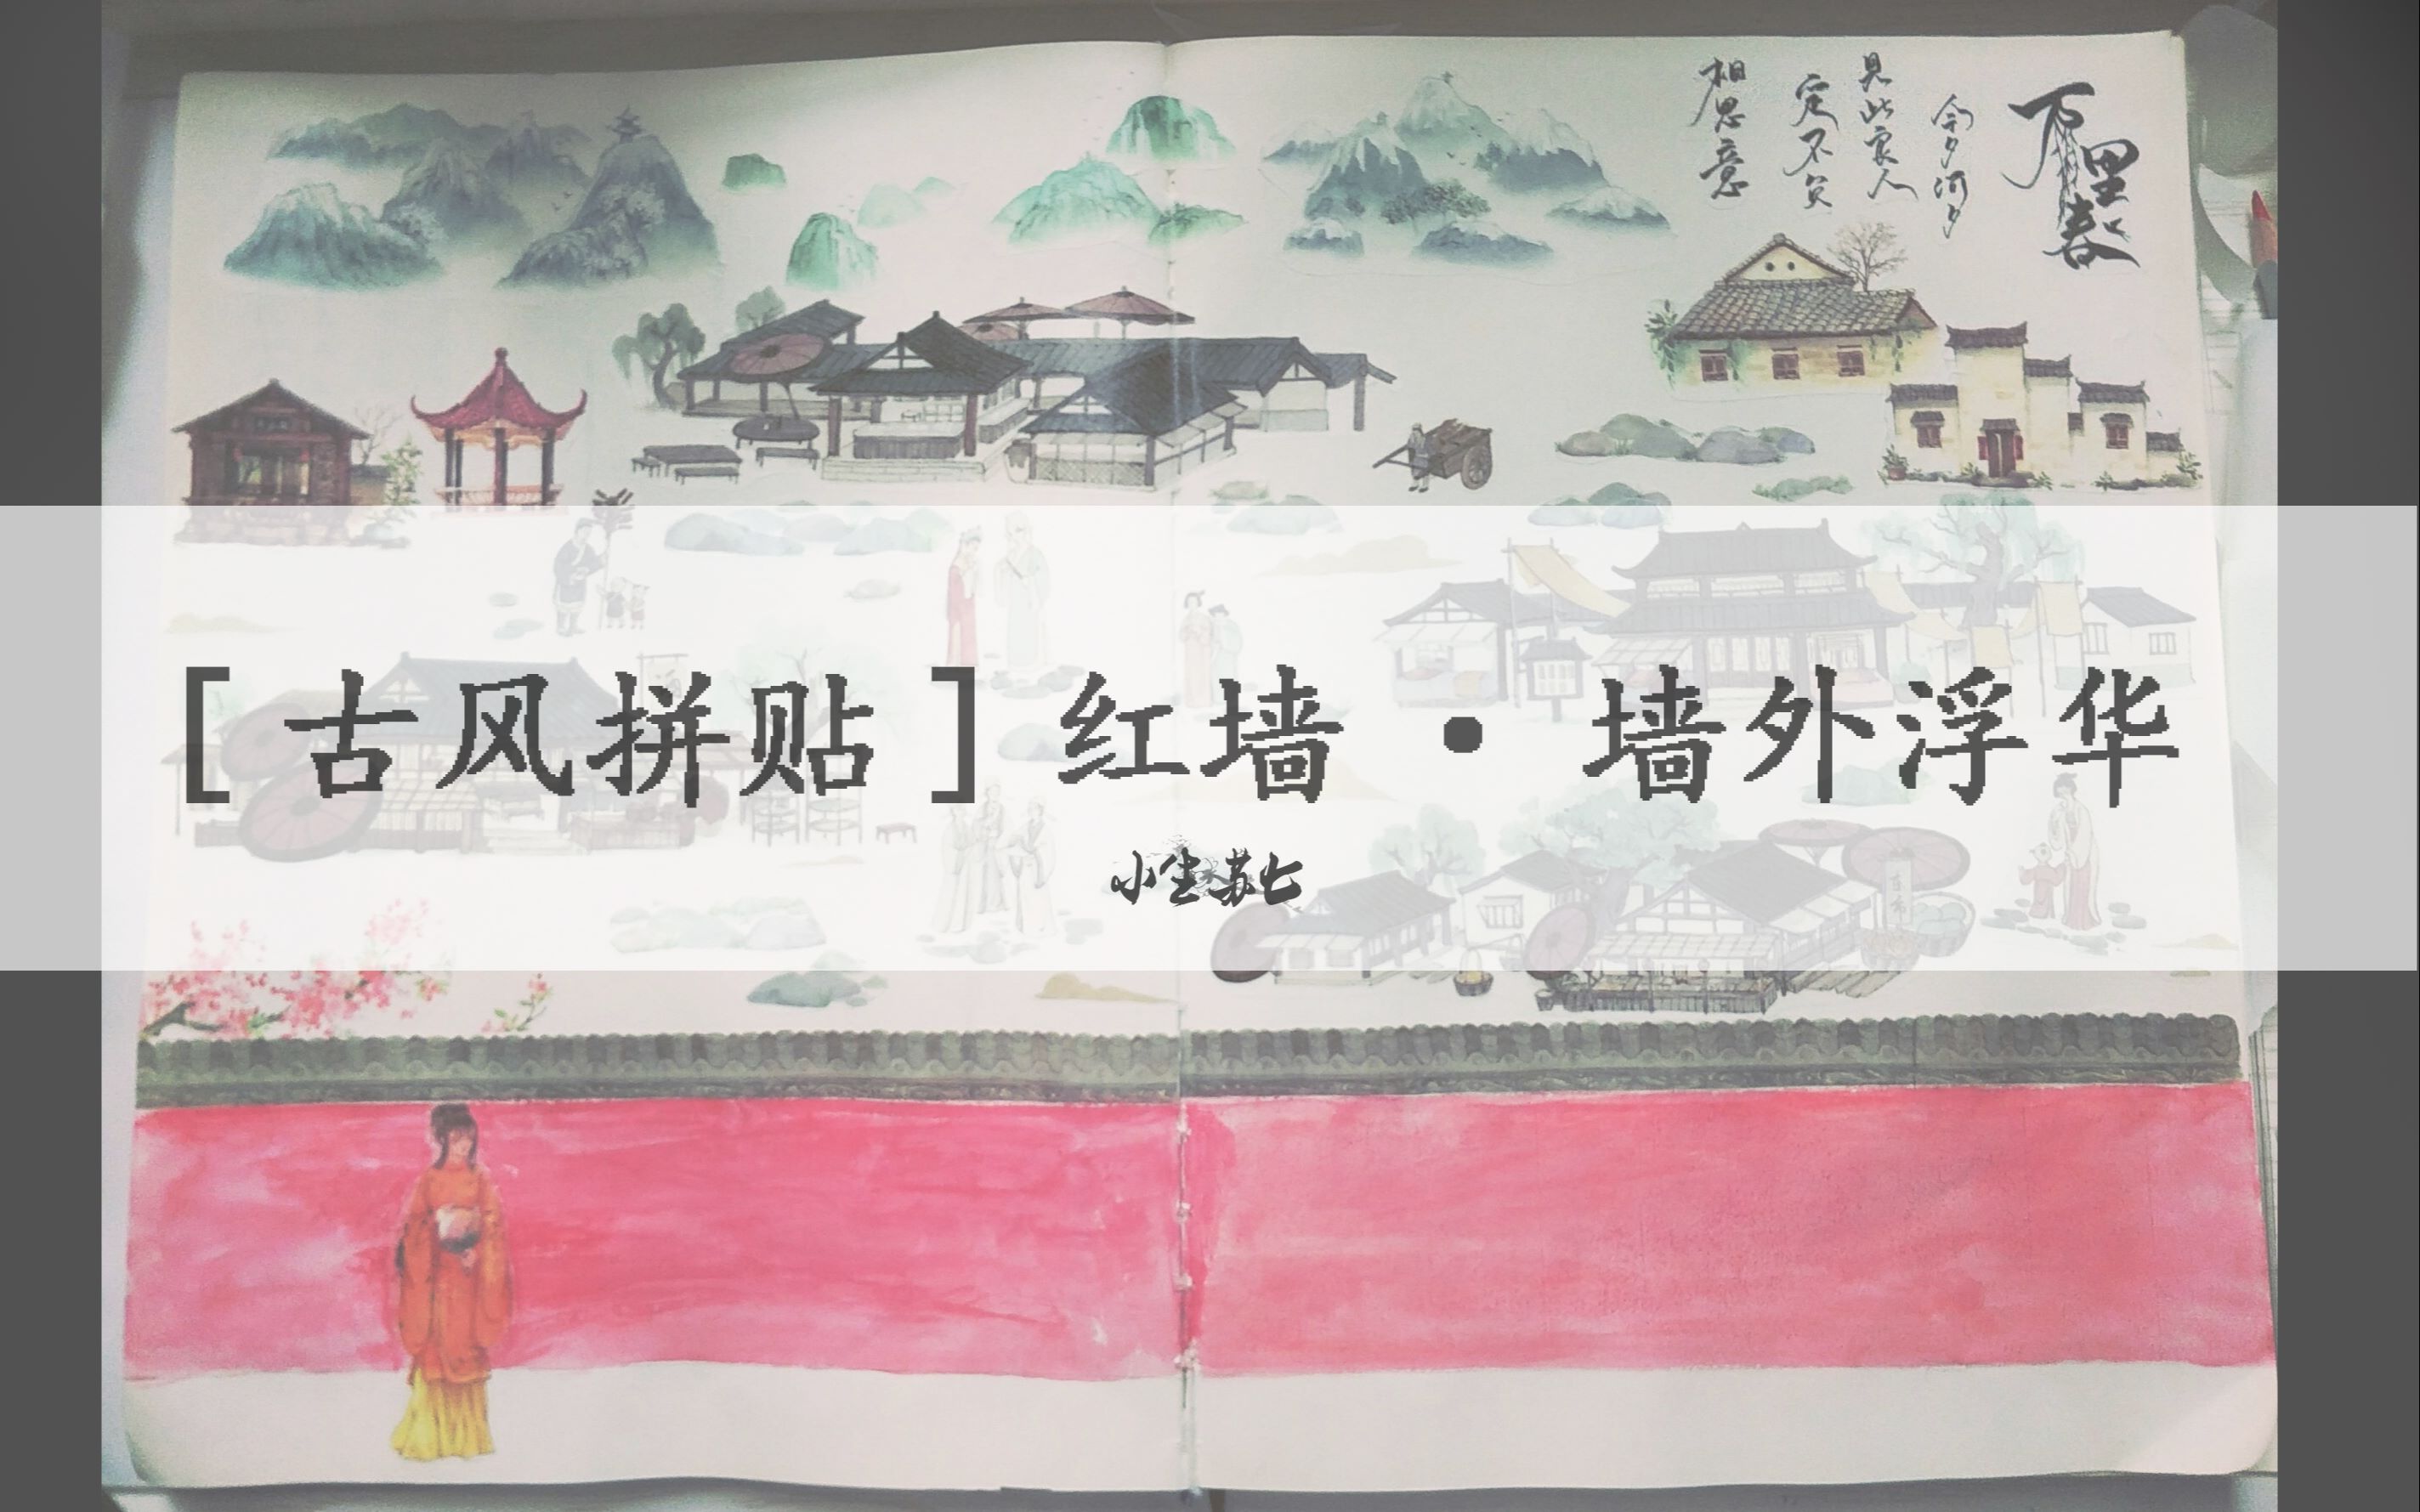 万里春
今夕何夕
見此良人
定不负
相思意
[古风拼贴]红墙·墙外浮华
小生苏七